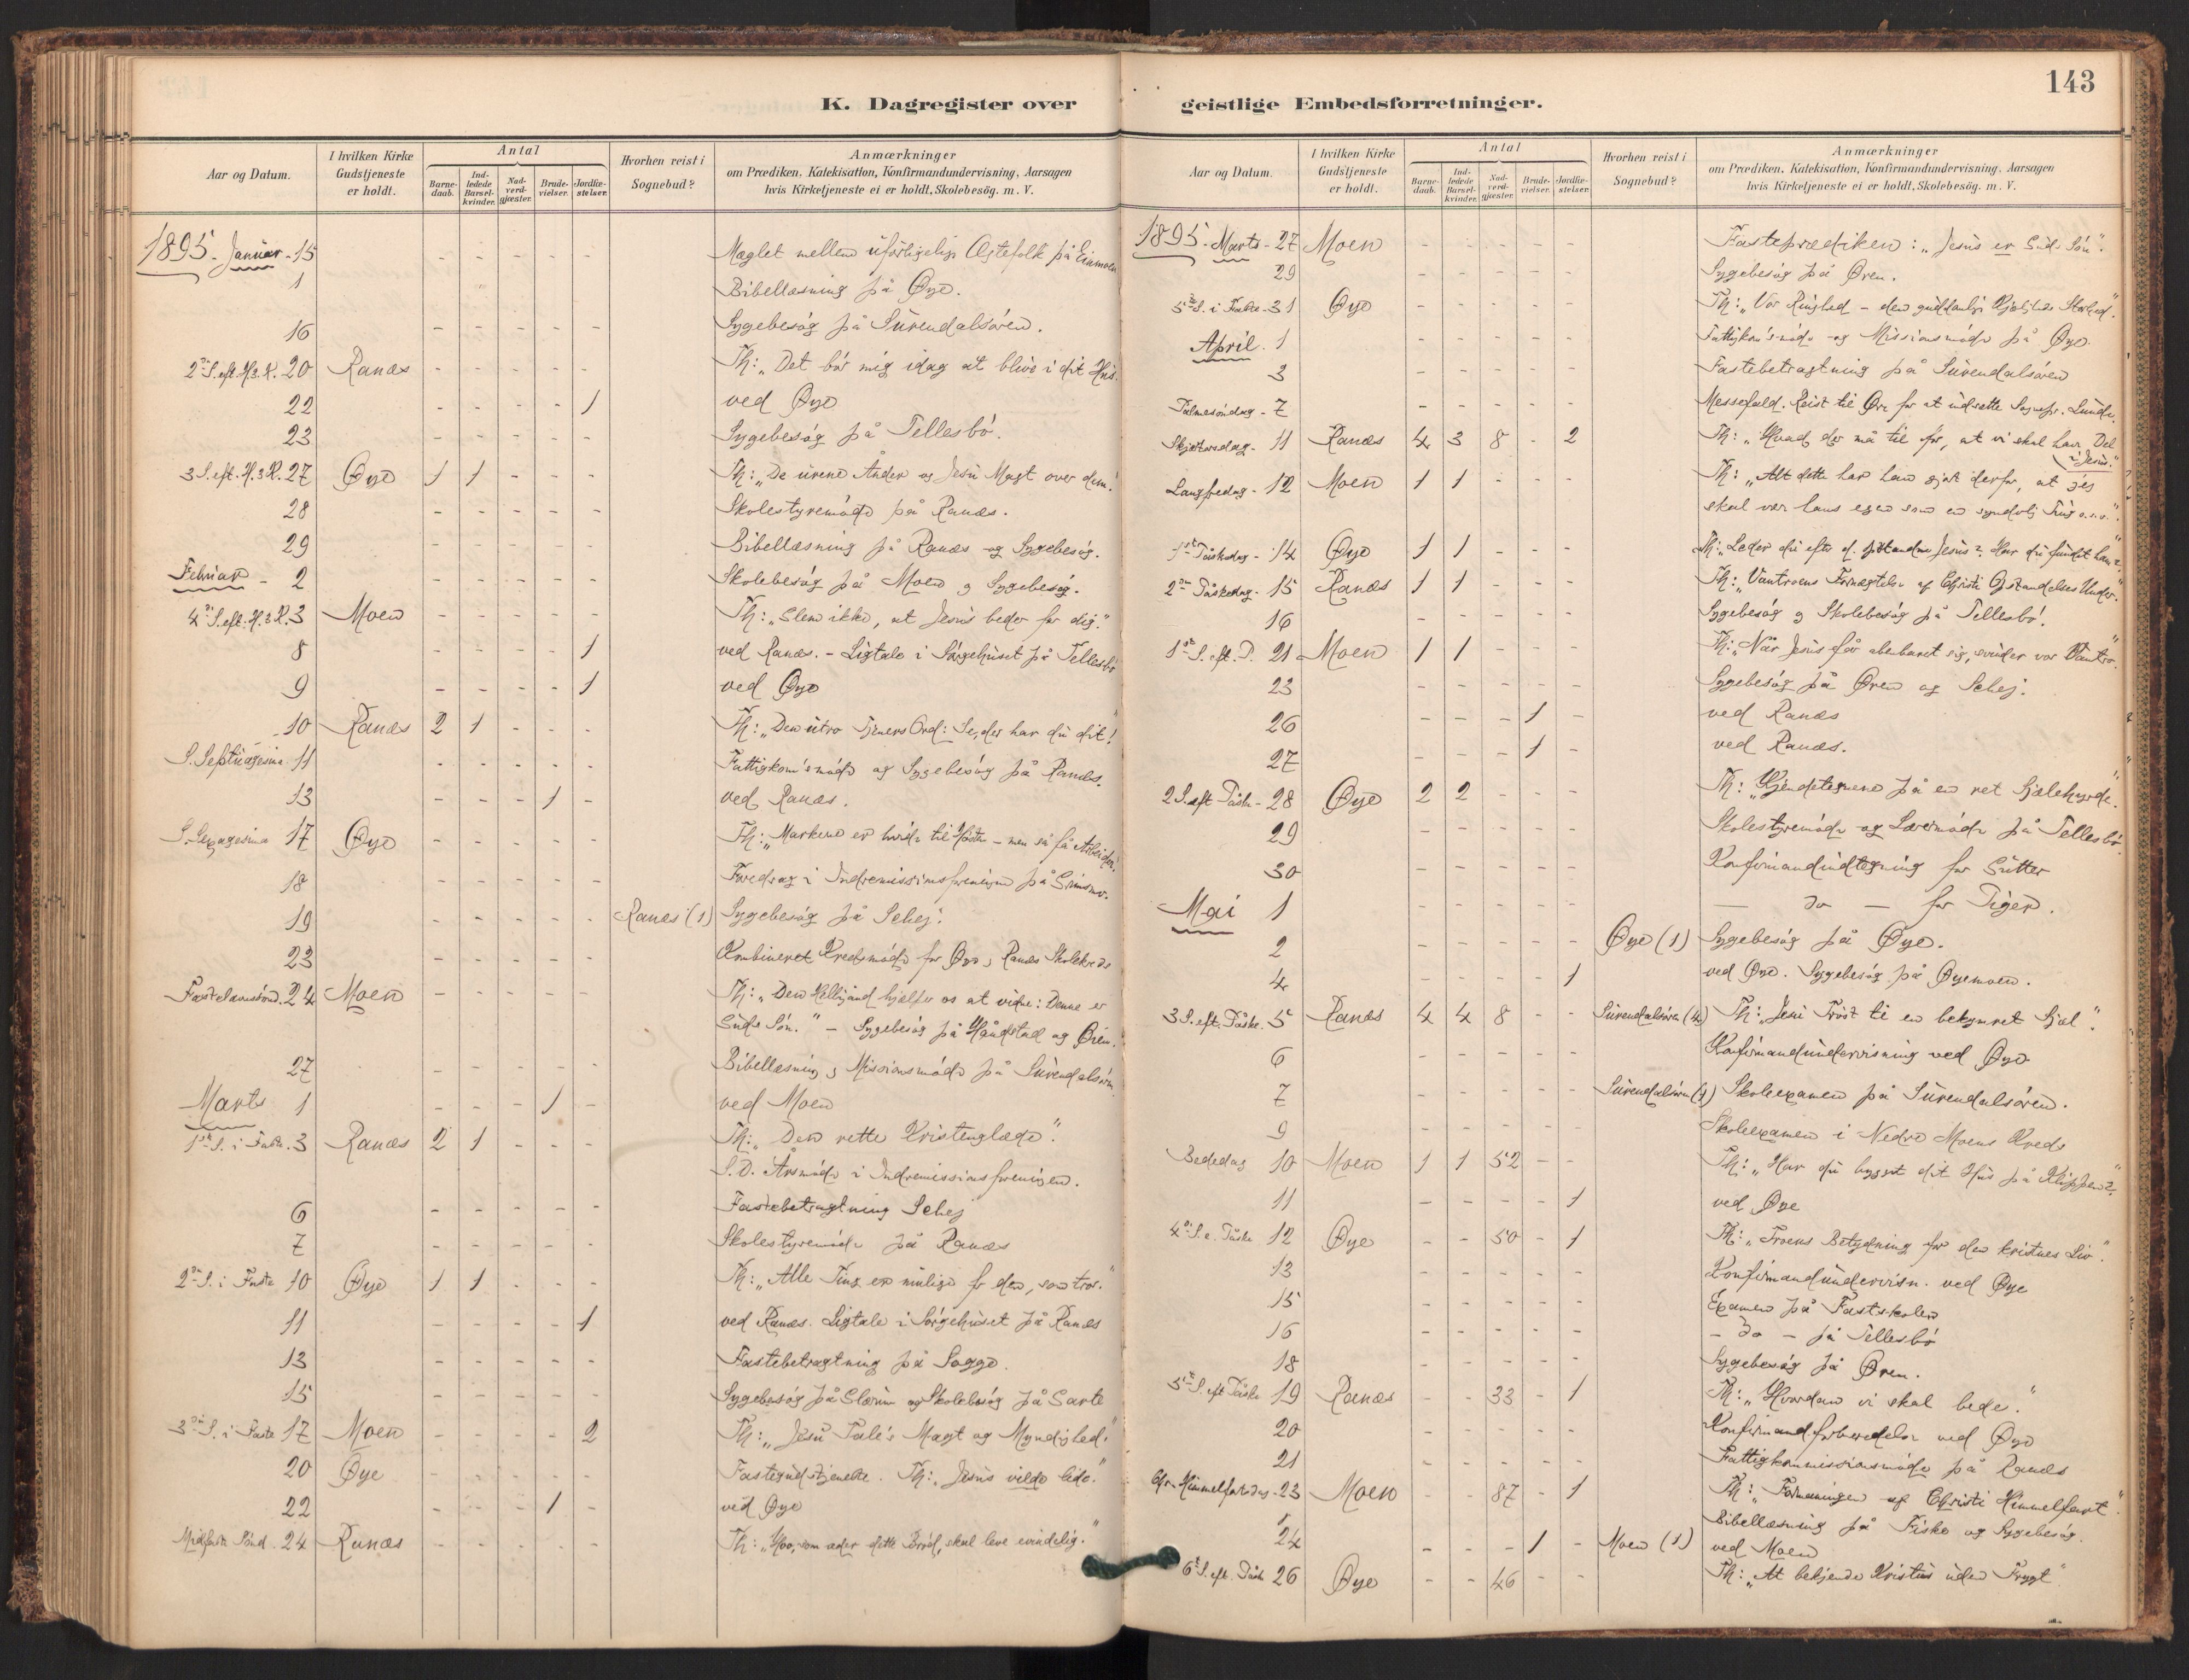 143
K. Dagregister over
geistlige Embedsforretninger.
Aar og Datum.
I hvilken Kirke Gudstjeneste er holdt.
Antal
Barne-daab.
Ind-ledede Barsel-kvinder.
Nad-verd-gjæster.
Brude-vielser.
Jordfæ-stelser.
Hvorhen reist i Sognebud?
Anmærkninger
om Prædiken, Katekisation, Konfirmandundervisning, Aarsagen
hvis Kirketjeneste ei er holdt, Skolebesög. m. V.
1895. Januar - 15 - - - - - Mæglet mellem uforligelige Ægtefolk på
1 Bibellæsning på Øye.
16 - - - - - Sygebesøg på Surendalsøren.
2den S. eft. H.3.K. 20 Ranæs - - - - - Th: "Det bør mig idag at blive i dit Hus.
22 - - - - 1 ved Øye
23 - - - - - Sygebesøg på Tellesbø.
3 S. eft. H.3K. 27 Øye 1 1 - - - Th: "De urene Ånder og Jesu Magt over dem."
28 - - - - - Skolestyremøde på Ranæs.
29 - - - - - Bibellæsning på Ranæs og Sygebesøg.
Februar - 2 - - - - - Skolebesøg på Moen og Sygebesøg.
4de S. eft. H.3K. 3 Moen - - - - - Th: "Glem ikke, at Jesus beder for dig."
8 - - - - 1 ved Ranæs. - Ligtale i Sørgehuset på Tellesbø
9 - - - - 1 ved Øye
10 Ranæs 2 1 - - - Th: "Den utro Tjeners Ord: Se, der har du dit!"
S. Septuagesima 11 - - - - - Fattigkom's møde og Sygebesøg på Ranæs.
13 - - - 1 - ved Ranæs.
S. Sexagesima 17 Øye - - - - - Th: "Markene er hvide til Høsten - men så få Arbeider."
18 - - - - - Foredrag i Indremissionsforeningen på
19 - - - - - Ranæs (1) Sygebesøg på Schej.
23 - - - - - Kombineret Kredsmøde for Øye og Ranæs Skolekreds
Fastelavnssønd. 24 Moen - - - - - Th: "Den Helligånd hjælper os at vidne: Denne er
Guds Søn." - Sygebesøg på Håndstad og Øren.
27 - - - - - Bibellæsning og Missionsmøde på Surendalsøren
Marts 1 - - - 1 - ved Moen
1ste S. i Faste. 3 Ranæs 2 1 - - - Th: "Den rette Kristenglæde".
S.D. Årsmøde i Indremissionsforeningen.
6 - - - - - Fastebetragtning Schej
7 - - - - - Skolestyremøde på Ranæs
2den S. i Faste 10 Øye 1 1 - - - Th: "Alle Ting er mulige for den, som tror."
11 - - - - 1 ved Ranæs. Ligtale i Sørgehuset på Ranæs
13 - - - - - Fastebetragtning på Sogge.
15 - - - - - Sygebesøg på Glærum og Skolebesøg på Sæter
3die S. i Faste 17 Moen - - - - 2 Th: "Jesu Tale's Magt og Myndighed."
20 Øye - - - - - Fastegudstjeneste. Th: "Jesus vilde lide."
22 - - - 1 - ved Øye
Midfaste Sønd. 24 Ranæs - - - - - Th: "Hvo, som æder dette Brød, skal leve evindelig."
1895. Marts - 27 Moen - - - - - Fasteprædiken: "Jesus er Guds Søn".
29 - - - - - Sygebesøg på Øren.
5te S. i Faste - 31 Øye - - - - - Th: "Vor Ringhed - den guddomlige Kjærligheds Storhed."
April. 1 - - - - - Fattigkom's møde og Missionsmøde på Øye
3 - - - - - Fastebetragtning på Surendalsøren
Palmesøndag - 7 - - - - - Messefald. Reist til Øre for at indsætte Sognepr. Lunde.
Skjærtorsdag - 11 Ranæs 4 3 8 - 2 Th: "Hvad der må til for, at vi skal have Del
i Jesus."
Langfredag - 12 Moen 1 1 - - - Th: "Alt dette har han gjort derfor, at jeg
skal være hans egen som en
1ste Påskedag - 14 Øye 1 1 - - - Th: "Leder du efter d. opstandne Jesus? Har du fundet ham?"
2den Påskedag - 15 Ranæs 1 1 - - - Th: "Vantroens Fornægtelse af Christi Opstandelses Under."
16 - - - - - Sygebesøg og Skolebesøg på Tellesbø.
1ste S. eft. P. 21 Moen 1 1 - - - Th: "Når Jesus får åbenbaret sig, svinder vor Vantro."
23 - - - - - Sygebesøg på Øren og Schej.
26 - - - 1 - ved Ranæs
27 - - - 1 - ved Ranæs.
2 S. eft Påske - 28 Øye 2 2 - - - Th: "Kjendetegnene på en ret Sjælehyrde."
29 - - - - - Skolestyremøde og Lærermøde på Tellesbø
30 - - - - - Konfirmandindtegning for Gutter
Mai 1 - - - - - — do — for Piger.
2 - - - - - Øye (1) Sygebesøg på Øye.
4 - - - - 1 ved Øye. Sygebesøg på Øyemoen.
3 S. eft. Påske. 5 Ranæs 4 4 8 - - Surendalsøren (4) Th: "Jesu Trøst til en bekymret Sjæl".
6 - - - - - Konfirmandundervisning ved Øye
7 - - - - - Surendalsøren (1) Skoleexamen på Surendalsøren.
9 - - - - - Skoleexamen i Nedre Moens Kreds
Bededag 10 Moen 1 1 52 - - Th: "Har du bygget dit Hus på Klippen?"
11 - - - - 1 ved Øye
4de S. e. Påske 12 Øye - - 50 - 1 Th: "Troens Betydning for den kristnes Liv".
13 - - - - - Konfirmandundervisn. ved Øye
15 - - - - - Examen på Fastskolen
16 - - - - - - do - på Tellesbø
18 - - - - - Sygebesøg på Øren.
5te S. eft Påske 19 Ranæs - - 33 - 1 Th: "Hvordan vi skal bede."
20 - - - - - Konfirmandforberedelse ved Øye
21 - - - - - Fattigkommissionsmøde på Ranæs
Chr. Himmelfartsdag - 23 Moen - - 87 - 1 Th: "Formaningen af Christi Himmelfart".
Bibellæsning på Fiske og Sygebesøg.
24 - - - 1 - Moen (1) ved Moen
6te S. eft. Påske 26 Øye - - 46 - - Th: "At bekjende Kristus uden Frygt"